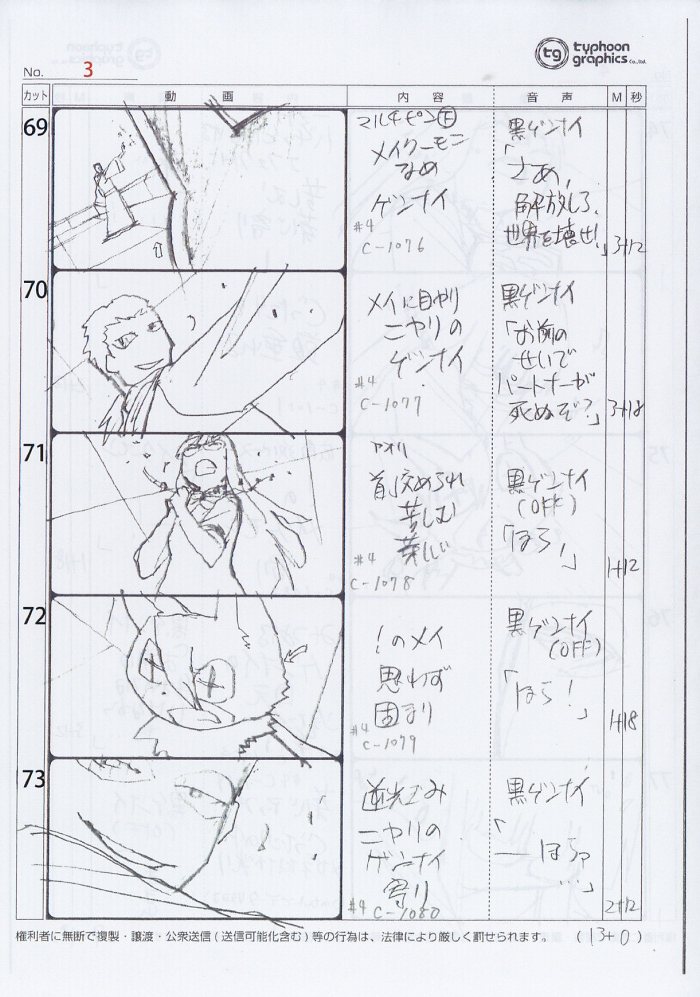 typhoon
graphics Co.,Ltd.
No. 3
カット 動画 内容 音声 M 秒
69
マルチピン下
メイクーモニ
なめ
ゲンナイ
#4
C-1076
黒ゲンナイ
「さあ、
解放しろ、
世界を壊せ!」
3+12
70
メイに目やり
ニヤリの
ゲンナイ
#4
C-1077
黒ゲンナイ
「お前の
せいで
パートナーが
死ぬぞ?」
3+18
71
アオリ
首絞められ
苦しむ
#4
C-1078
黒ゲンナイ
(OFF)
「ほら!」
1+12
72
!のメイ
思わず
固まり
#4
C-1079
黒ゲンナイ
(OFF)
「ほら!」
1+18
73
逆光ごみ
ニヤリの
ゲンナイ
寄り
#4
C-1080
黒ゲンナイ
「――ほらッ
…」
2+12
権利者に無断で複製・譲渡・公衆送信(送信可能化含む)等の行為は、法律により厳しく罰せられます。 (13+0)